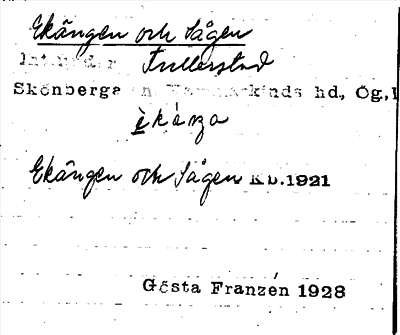 Ekängen och Sågen
Fullerstad
Skönberga sn Hammarkinds hd, Ög.
èkáŋa
Ekängen och Sågen Kb.1921
Gösta Franzén 1928